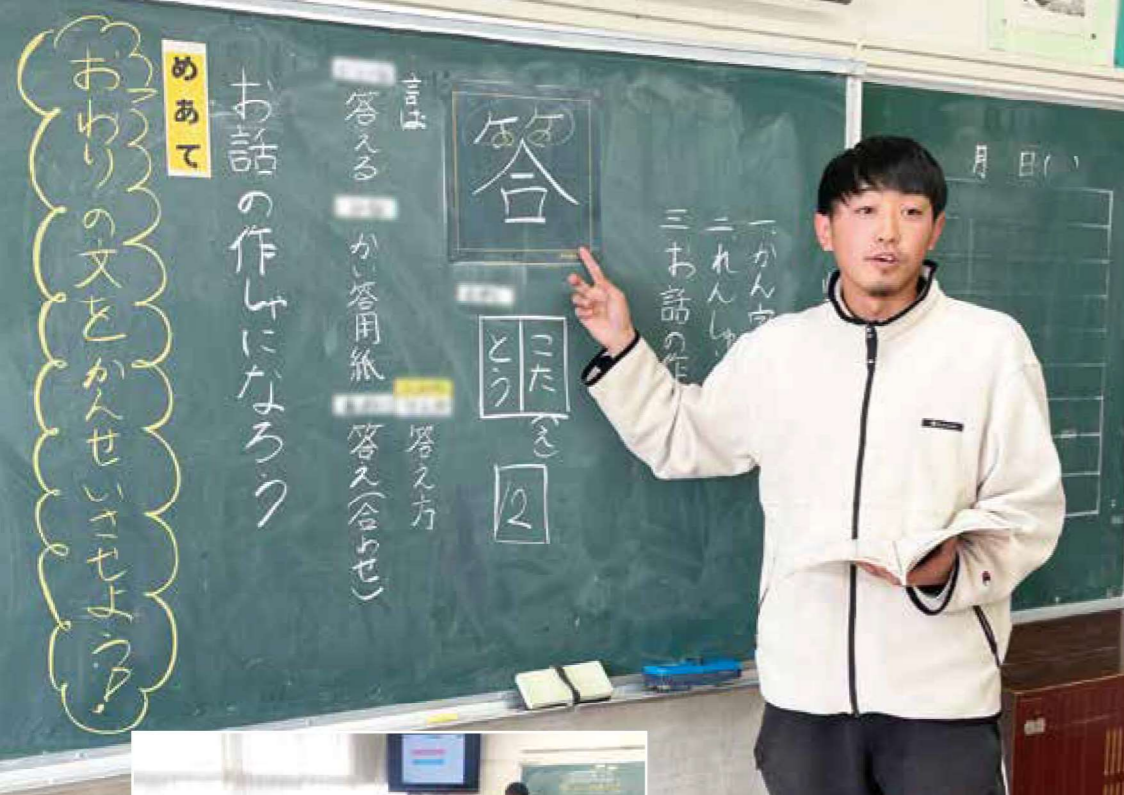 月 日( )
一、かん字
二、れんしゅ
三、お話の作
答
こた(え)
とう
12
答え方
言は
答える
かい答用紙
答え(合わせ)
お話の作しゃになろう
めあて
おわりの文をかんせいさせよう!